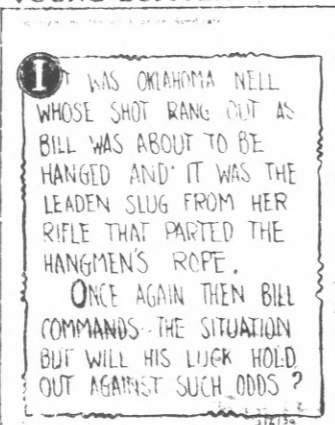 IT WAS OKLAHOMA NELL
WHOSE SHOT RANG OUT AS
BILL WAS ABOUT TO BE
HANGED AND IT WAS THE
LEADEN SLUG FROM HER
RIFLE THAT PARTED THE
HANGMEN'S ROPE.
ONCE AGAIN THEN BILL
COMMANDS THE SITUATION
BUT WILL HIS LUCK HOLD
OUT AGAINST SUCH ODDS?